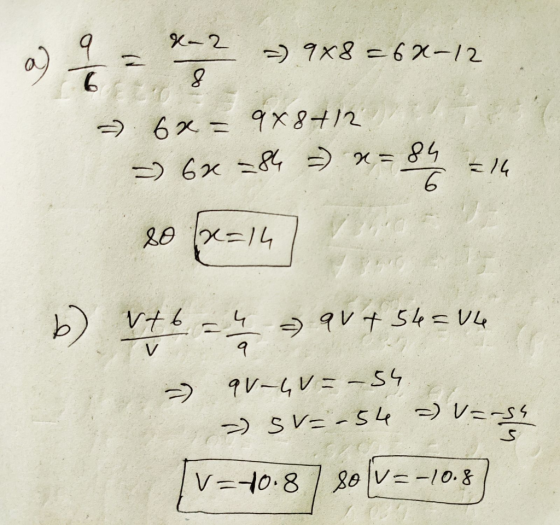 a) 9/6 = x-2/8 ⇒ 9×8 = 6x-12
⇒ 6x = 9×8+12
⇒ 6x = 84 ⇒ x = 84/6 = 14
so x=14
b) v+6/v = 4/9 ⇒ 9v + 54 = v4
⇒ 9v-4v = -54
⇒ 5v = -54 ⇒ v = -54/5
v = -10.8 so v = -10.8